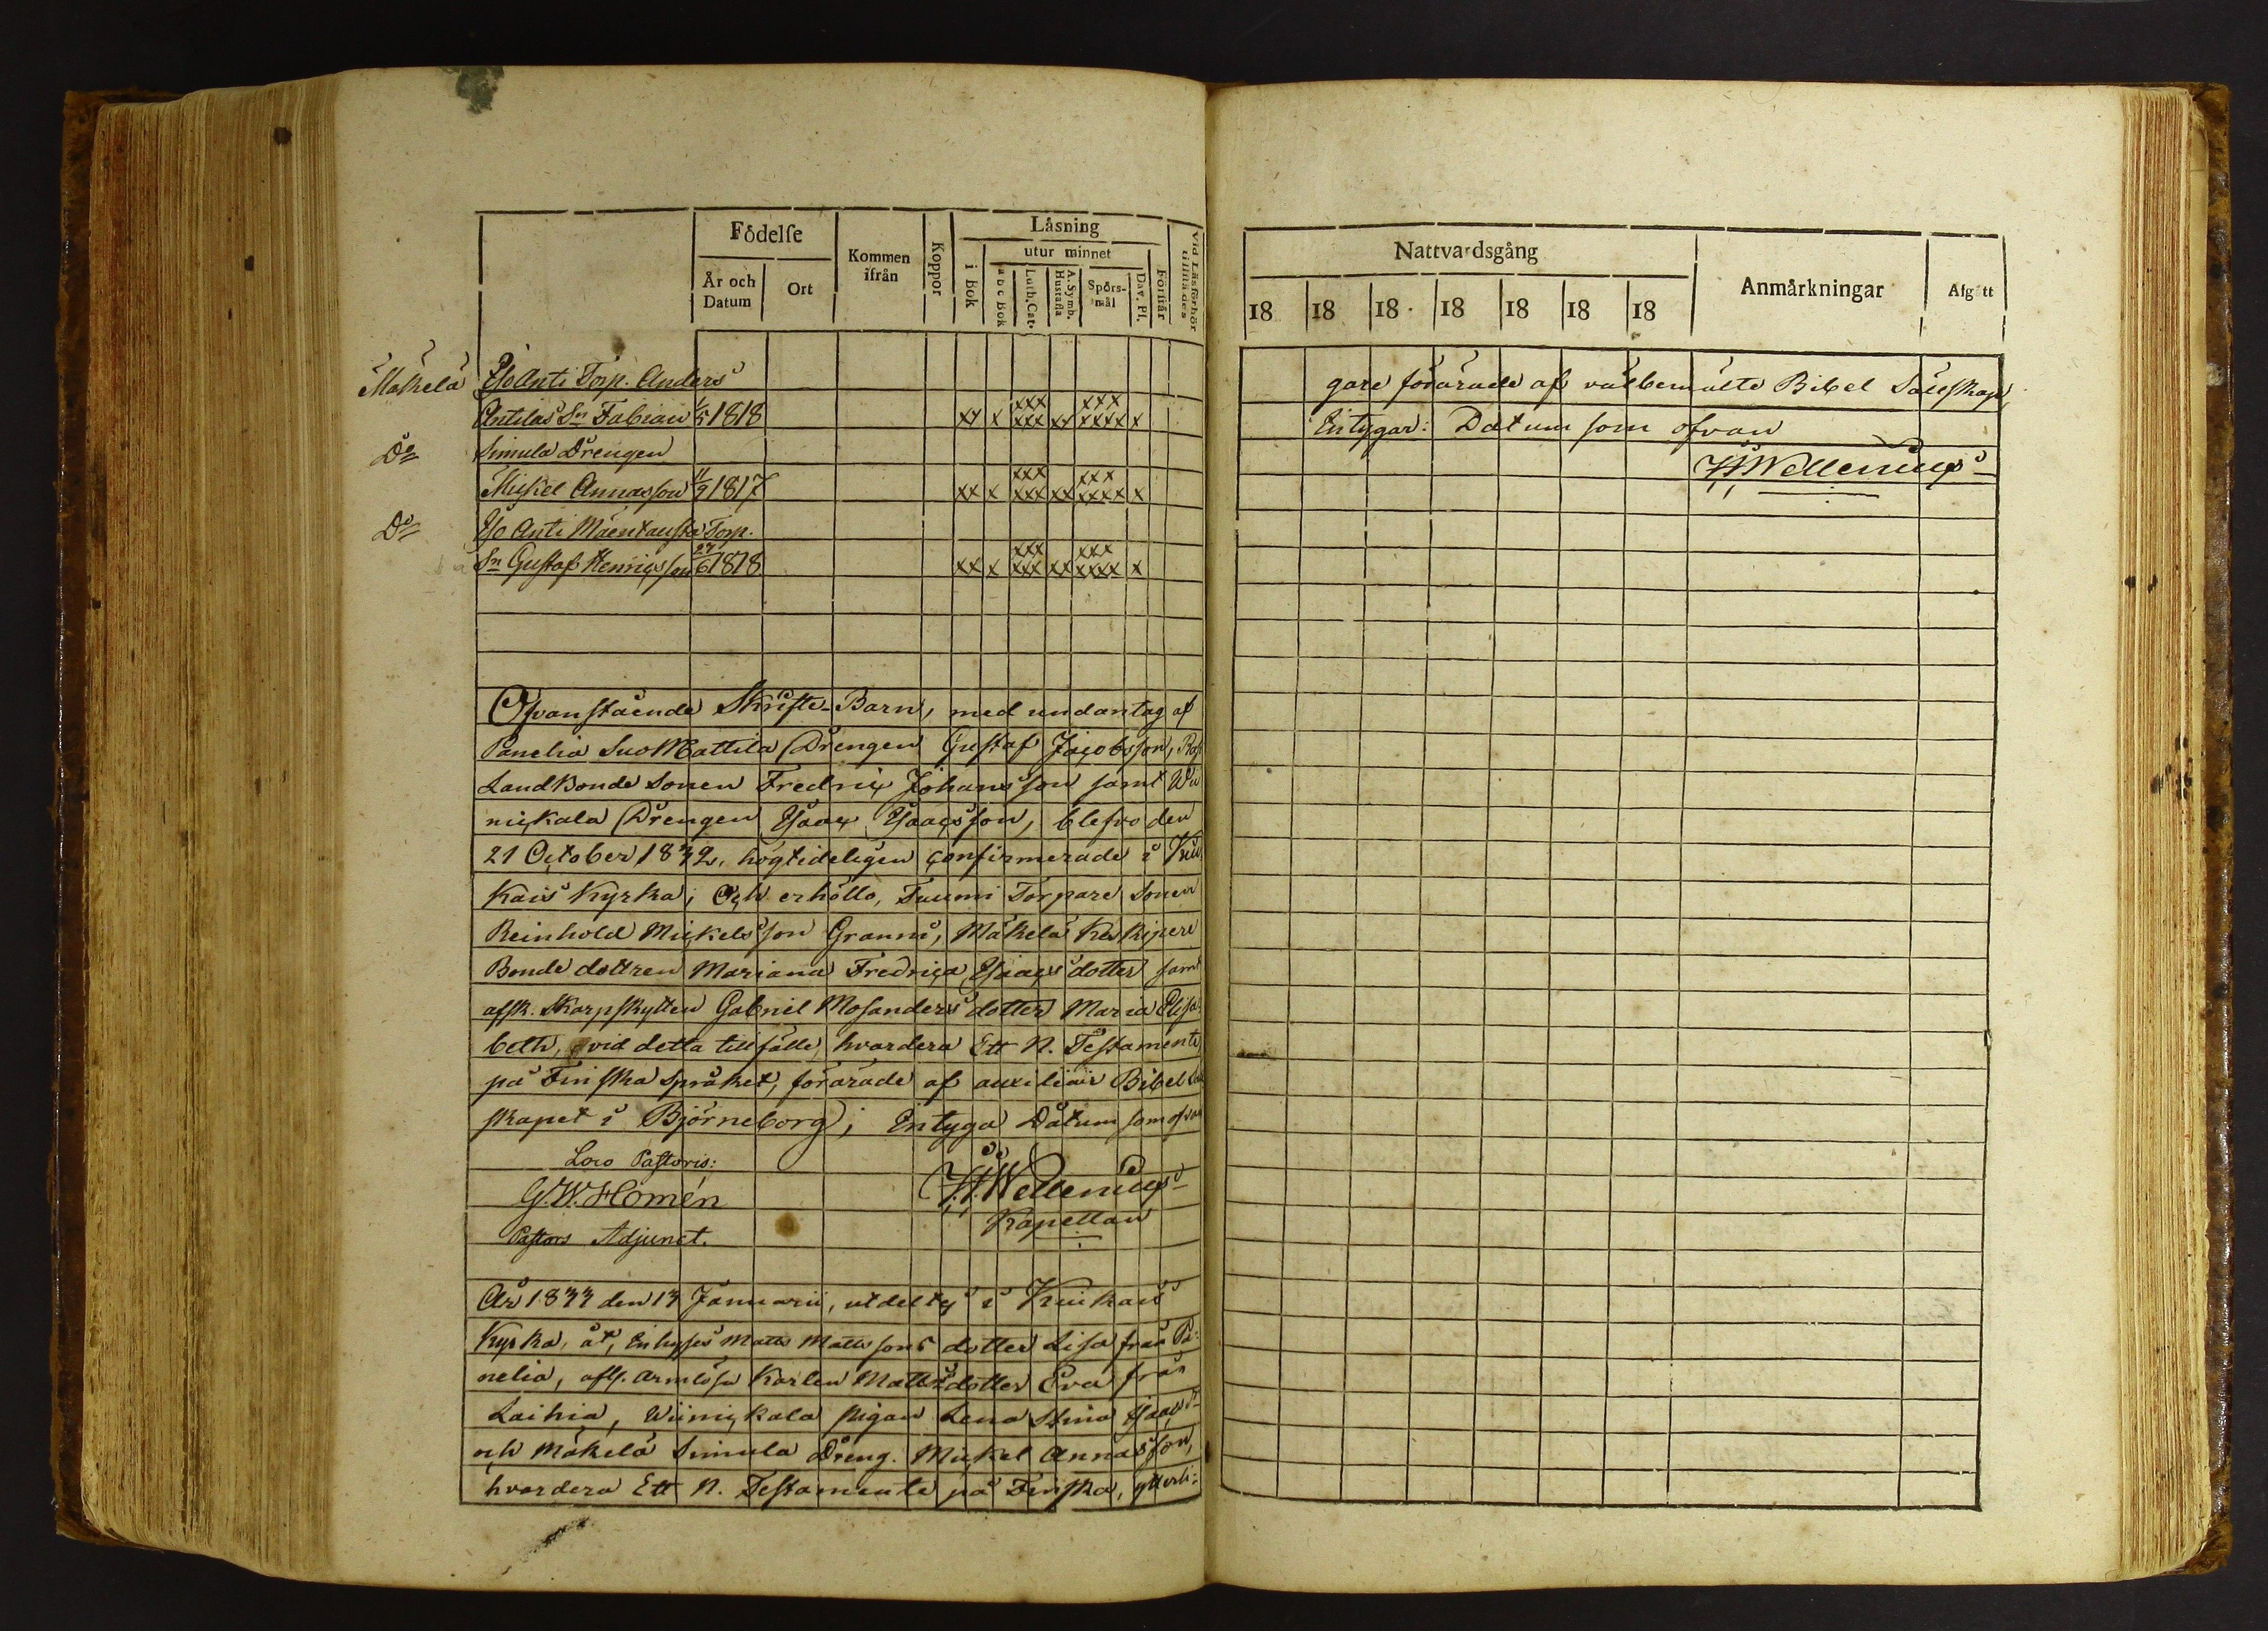 Födelse
Kommen ifrån
Koppor
Läsning
utur minnet
År och Datum
Ort
i Bok
a b c Bok
Luth. Cat.
A. Symb. Hustafla
Spörs-mål
Dav. Ps.
Förstår
Vid Läsförhör tillstädes
Mäkelä Iso Anti Torp. Anders
Antilas Sn Fabian 1/5 1818 xx x xxx xxx xx xxx xxxx x
Do Simula Drengen
Mickel Annasson 11/9 1817 xx x xxx xxx xx xxx xxxx x
Do Iso Anti Mäentausta Torp.
Sn Gustaf Henricsson 27/6 1818 xx x xxx xxx xx xxx xxxx x
Ofvanstående Skrifte-Barn, med undantag af
Panelia SuoMattila Drengen Gustaf Jacobsson,
LandBonde Sonen Fredric Johansson samt Wii
nickala Drengen Isaac Isaacsson, blefvo den
21 October 1832, högtideligen confirmerade i Kiu
kais Kyrka; Och erhöllo, Tuumi Torpare Sonen
Reinhold Mickelsson Granni, Mäkelä Keskipere
Bonde dottren Mariana Fredrica Isaacs dotter samt
afsk. Skarpskytten Gabriel Mosanders dotter Maria Elisa-
beth, vid detta tillfälle, hvardera Ett N. Testamente
på Finska Språket, förärade af auxiliair Bibel Säll
skapet i Björneborg; Intyga Datum som ofvan
Loco Pastoris:
G. W. Homén
Pastors Adjunct.
Wellenius
Kapellan
År 1833 den 13 Januarii, utdeltes i Kiukais
Kyrka, åt, Inhyses Matts Mattssons dotter Lisa från Pa-
nelia, afl. Armlösa Karlen Matts dotter Eva från
Laihia, Wiinickala pigan Lena Stina Isaacs dr
och Mäkelä Simula Dreng. Mickel Annasson,
hvardera Ett N. Testamente på Finska, ytterli-
Nattvardsgång
Anmärkningar
Afgått
18 18 18 18 18 18 18
gare förärade af välbemälte Bibel Sällskap,
Intygar: Datum som ofvan
Wellenius